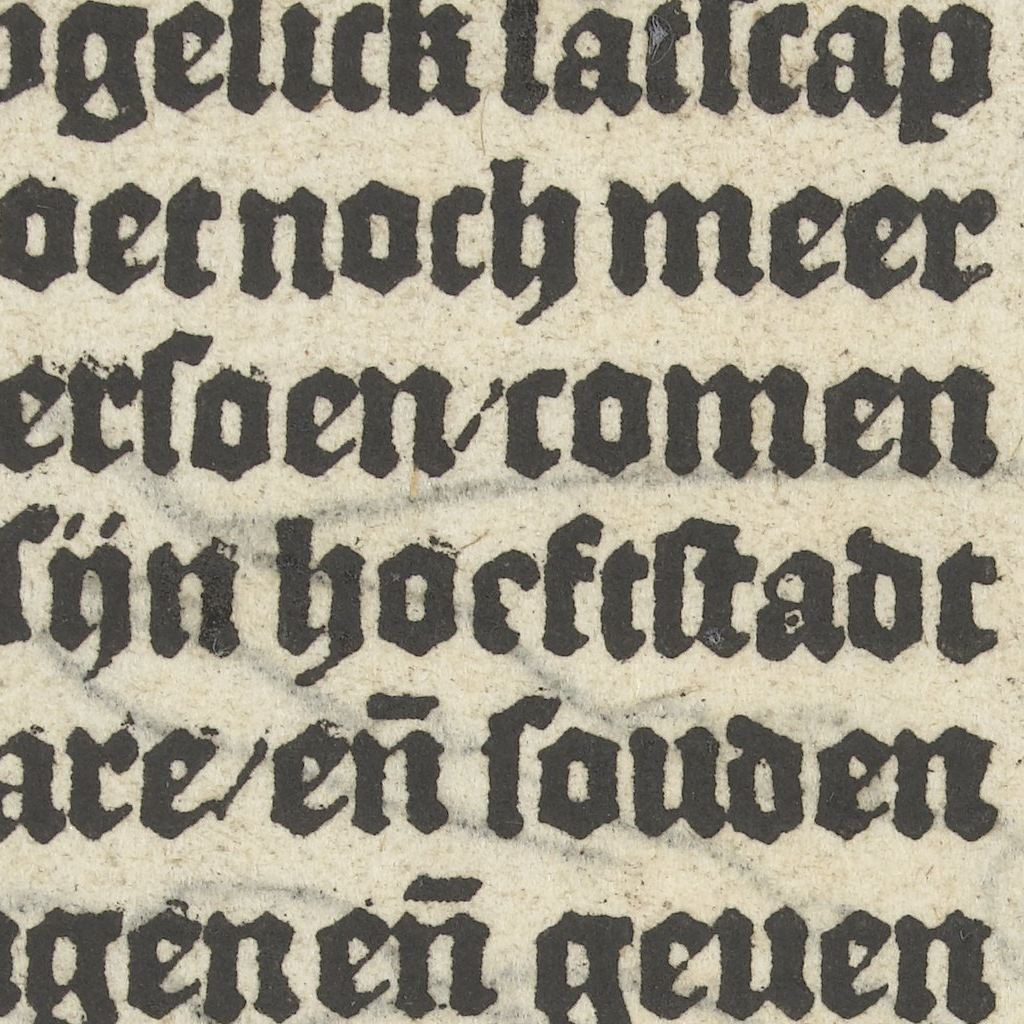 ogelick latſcap
oet noch meer
erſoen / comen
ſijn hoeftſtadt
are / en̄ ſouden
gen en̄ geuen